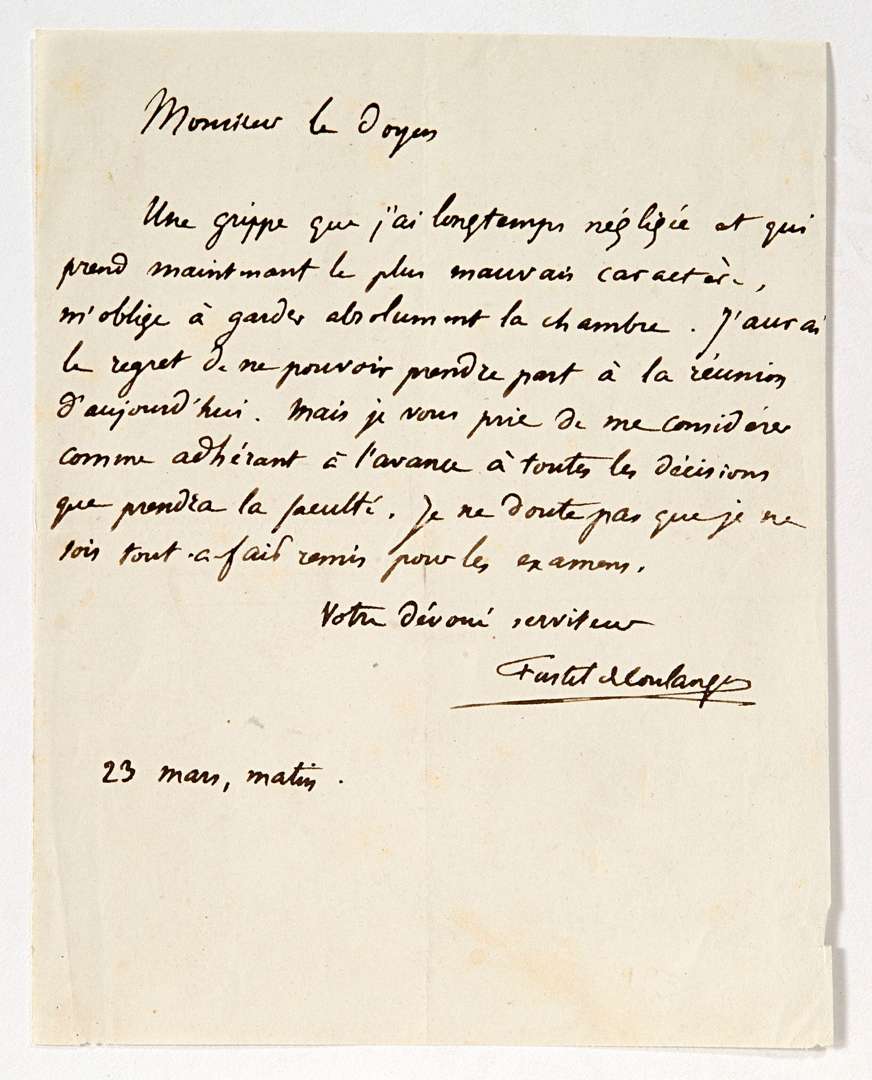 Monsieur le Doyen
Une grippe que j'ai longtemps négligée et qui
prend maintenant le plus mauvais caractère,
m'oblige à garder absolument la chambre. J'aurai
le regret de ne pouvoir prendre part à la réunion
d'aujourd'hui. Mais je vous prie de me considérer
comme adhérant à l'avance à toutes les décisions
que prendra la faculté. Je ne doute pas que je ne
sois tout-à-fait remis pour les examens.
Votre dévoué serviteur
Fustel de Coulanges
23 mars, matin.